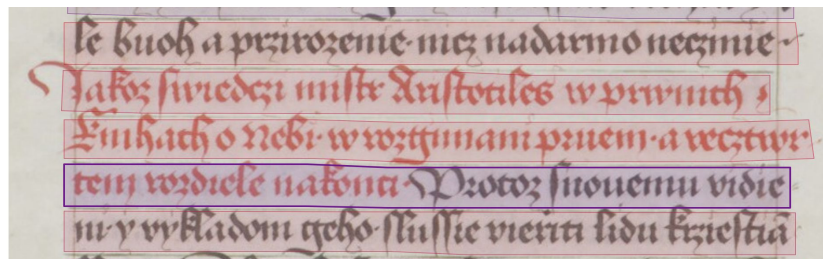 se buoh a przirozenie· nicz nadarmo neczinie·
Jakoz swiedczi mistr Aristotiles w prwnich
Knihach o Nebi· w rozgimani prwem· a wecztwr
tem rozdiele nakonci· Protoz snowemu vidie
ni· y vykladom geho· slussie vieriti lidu krziestia